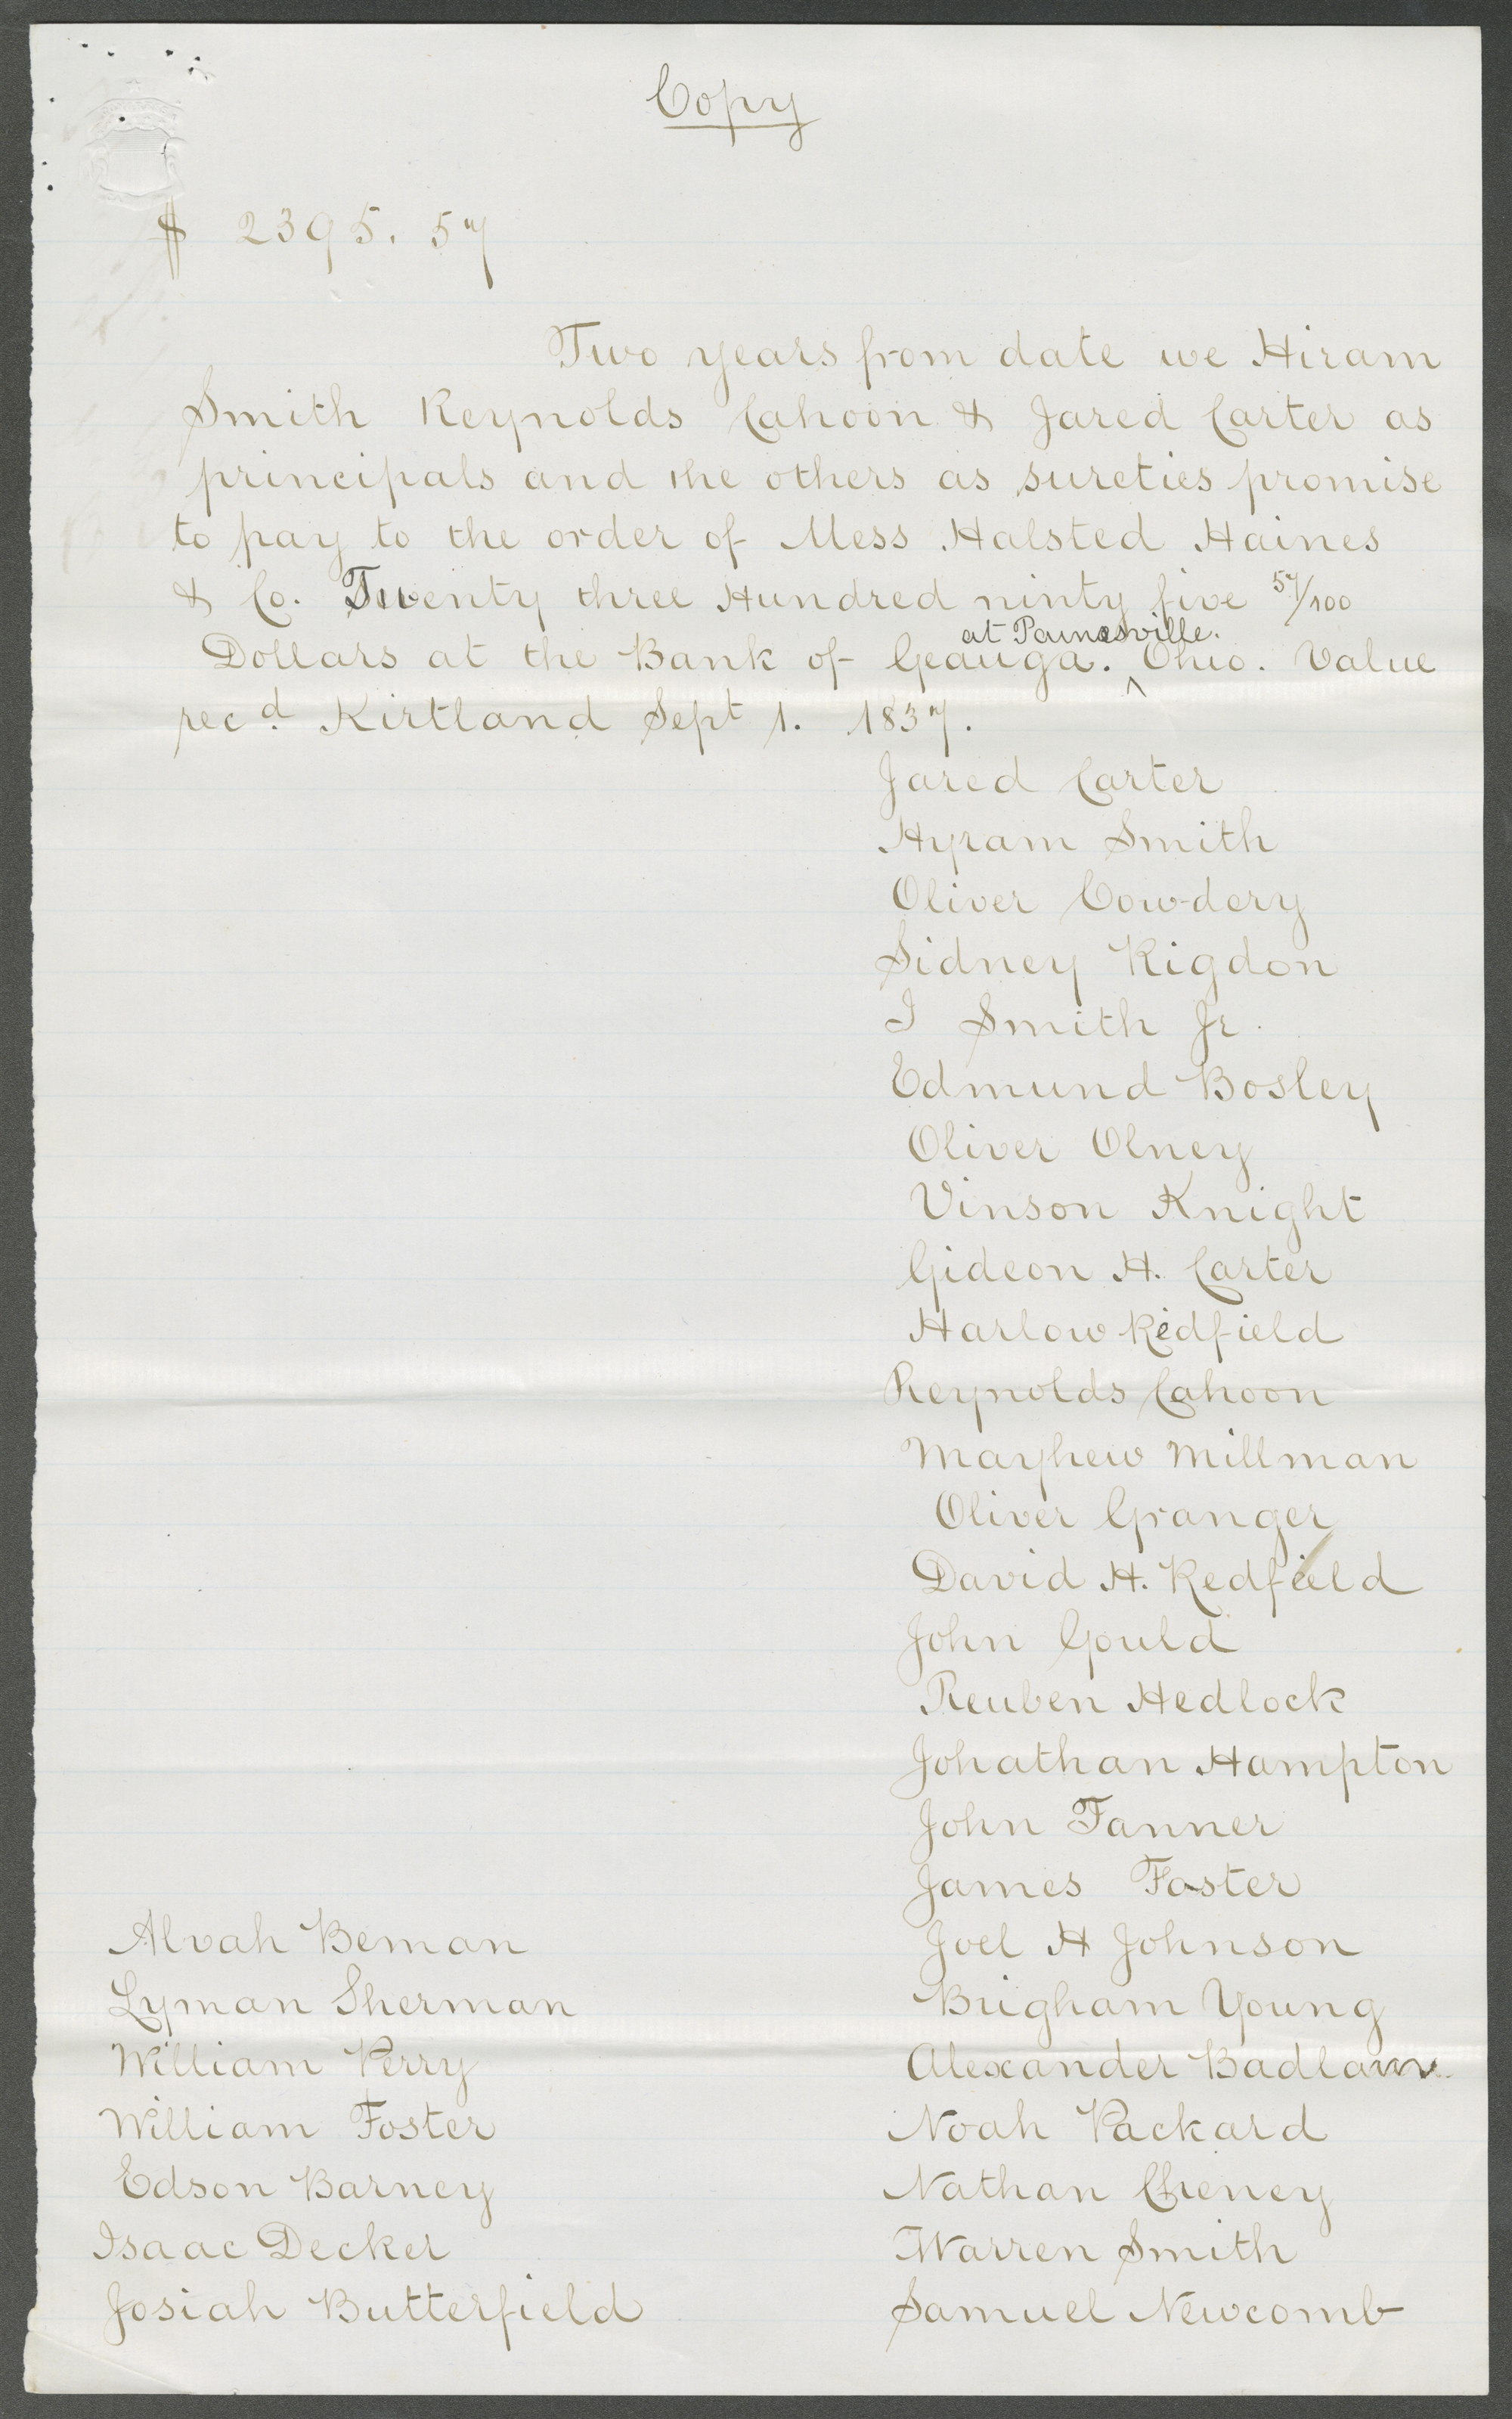 Copy
$ 2395. 57
Two years from date we Hiram
Smith Reynolds Cahoon & Jared Carter as
principals and the others as sureties promise
to pay to the order of Mess Halsted Haines
& Co. Twenty three Hundred ninty five 57/100
at Painesville.
Dollars at the Bank of Geauga. ^ Ohio. Value
recd. Kirtland Sept 1. 1837.
Jared Carter
Hyram Smith
Oliver Cowdery
Sidney Rigdon
J Smith Jr.
Edmund Bosley
Oliver Olney
Vinson Knight
Gideon H. Carter
Harlow Redfield
Reynolds Cahoon
Mayhew Millman
Oliver Granger
David H. Redfield
John Gould
Reuben Hedlock
Johathan Hampton
John Tanner
James Foster
Joel H Johnson
Brigham Young
Alexander Badlam
Noah Packard
Nathan Cheney
Warren Smith
Samuel Newcomb
Alvah Beman
Lyman Sherman
William Perry
William Foster
Edson Barney
Isaac Decker
Josiah Butterfield